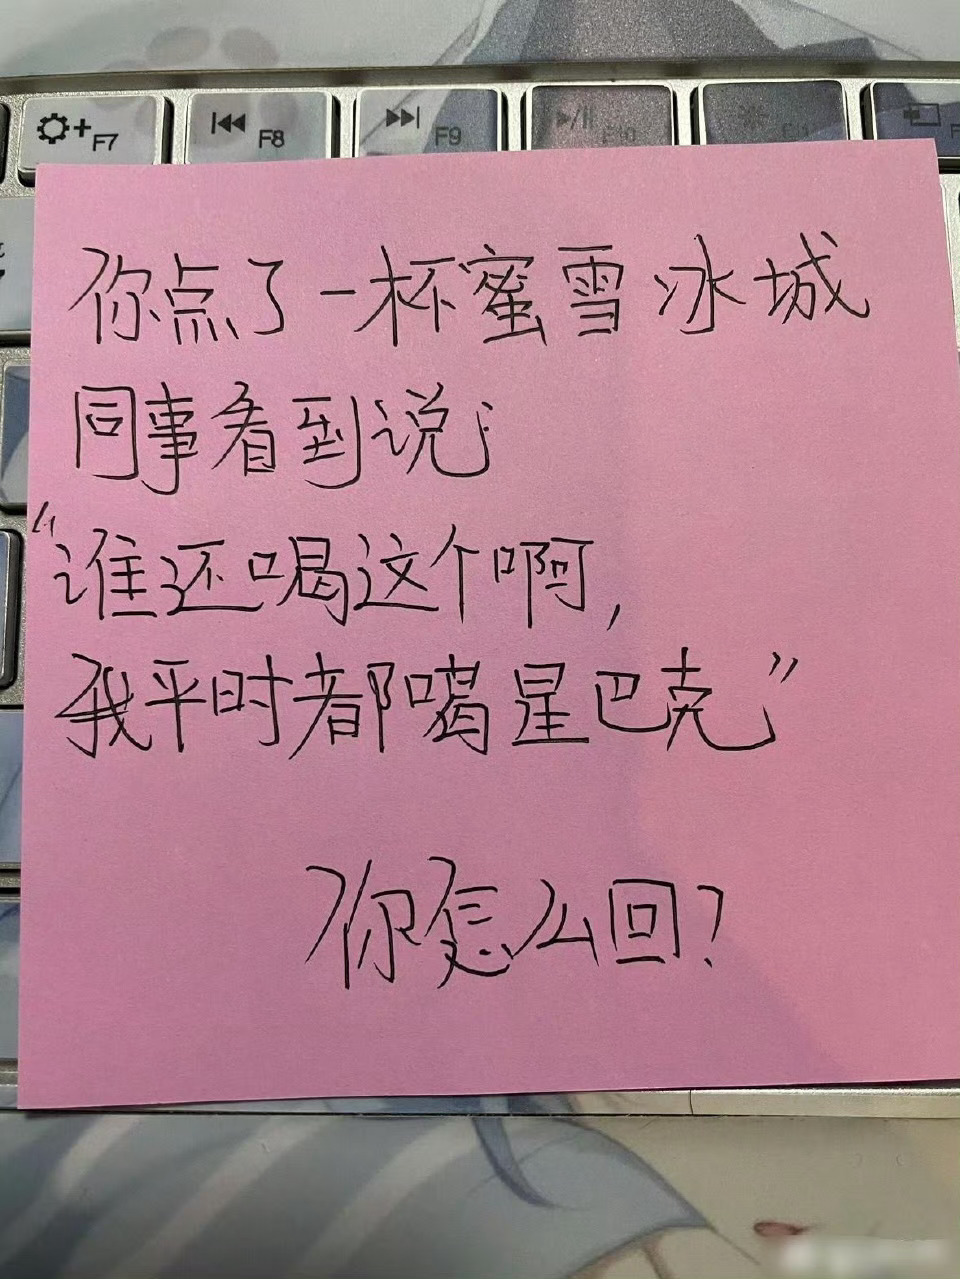 F7
F8
F9
F10
F11
你点了一杯蜜雪冰城
同事看到说
“谁还喝这个啊,
我平时都喝星巴克”
你怎么回?